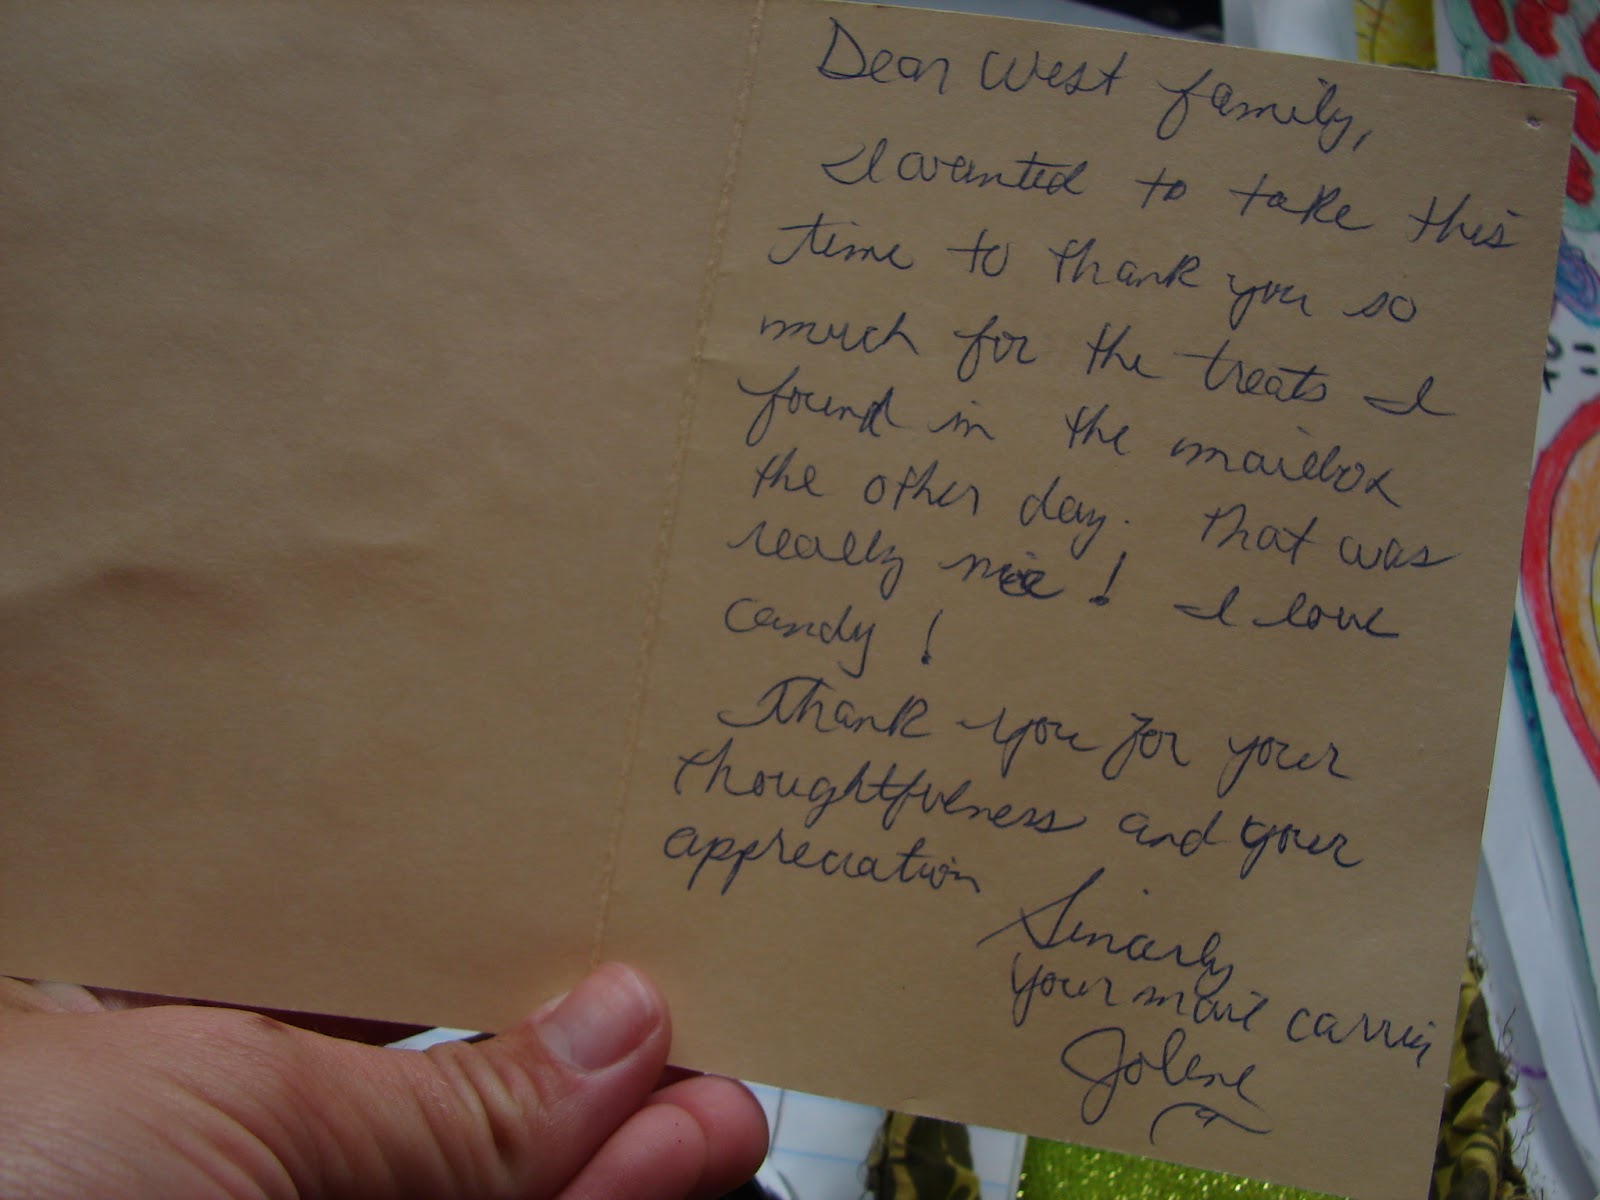 Dear West family,
I wanted to take this
time to thank you so
much for the treats I
found in the mailbox
the other day. That was
really nice! I love
candy!
Thank you for your
thoughtfulness and your
appreciation
Sincerly
your mail carrier
Jolene